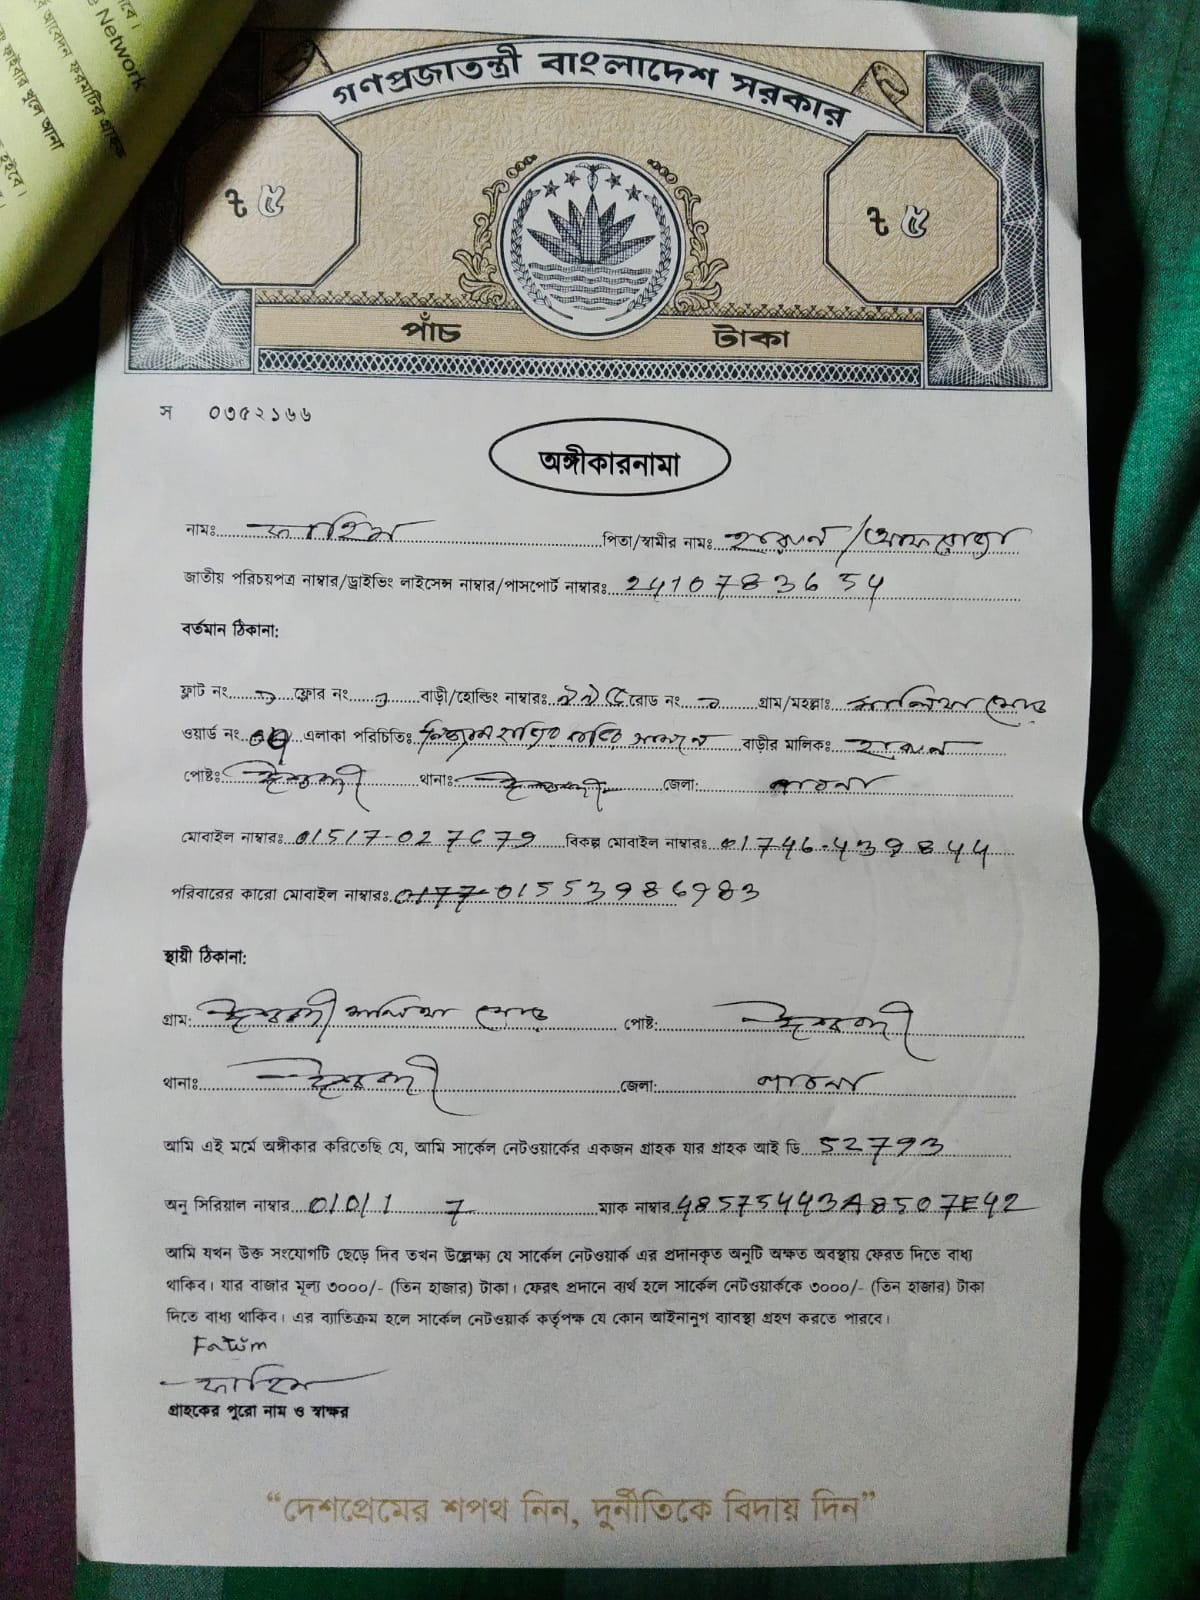 Network
আবেদন ফরমটির গ্রাহক
ফাইবার খুলে আনা
হইবে।
গণপ্রজাতন্ত্রী বাংলাদেশ সরকার
৳ ৫ ৳ ৫
পাঁচ টাকা
স ০৩৫২১৬৬
অঙ্গীকারনামা
নামঃ ফাহিম পিতা/স্বামীর নামঃ হারুন /আফরোজা
জাতীয় পরিচয়পত্র নাম্বার/ড্রাইভিং লাইসেন্স নাম্বার/পাসপোর্ট নাম্বারঃ 2410783654
বর্তমান ঠিকানা:
ফ্লাট নং ফ্লোর নং বাড়ী/হোল্ডিং নাম্বারঃ রোড নং গ্রাম/মহল্লাঃ
ওয়ার্ড নং এলাকা পরিচিতিঃ সামনে বাড়ীর মালিক: হারুন
পোষ্টঃ ঈশ্বরদী থানাঃ ঈশ্বরদী জেলা: পাবনা
মোবাইল নাম্বারঃ 01517-027679 বিকল্প মোবাইল নাম্বারঃ 01746-439844
পরিবারের কারো মোবাইল নাম্বারঃ 0177 01553986983
স্থায়ী ঠিকানা:
গ্রাম: ঈশ্বরদী পোষ্ট: ঈশ্বরদী
থানাঃ ঈশ্বরদী জেলা: পাবনা
আমি এই মর্মে অঙ্গীকার করিতেছি যে, আমি সার্কেল নেটওয়ার্কের একজন গ্রাহক যার গ্রাহক আই ডি 52793
অনু সিরিয়াল নাম্বার 0/0/1 7 ম্যাক নাম্বার 48575443A8507E42
আমি যখন উক্ত সংযোগটি ছেড়ে দিব তখন উল্লেক্ষ্য যে সার্কেল নেটওয়ার্ক এর প্রদানকৃত অনুটি অক্ষত অবস্থায় ফেরত দিতে বাধ্য
থাকিব। যার বাজার মূল্য ৩০০০/- (তিন হাজার) টাকা। ফেরৎ প্রদানে ব্যর্থ হলে সার্কেল নেটওয়ার্ককে ৩০০০/- (তিন হাজার) টাকা
দিতে বাধ্য থাকিব। এর ব্যাতিক্রম হলে সার্কেল নেটওয়ার্ক কর্তৃপক্ষ যে কোন আইনানুগ ব্যাবস্থা গ্রহণ করতে পারবে।
ফাহিম
গ্রাহকের পুরো নাম ও স্বাক্ষর
“দেশপ্রেমের শপথ নিন, দুর্নীতিকে বিদায় দিন”